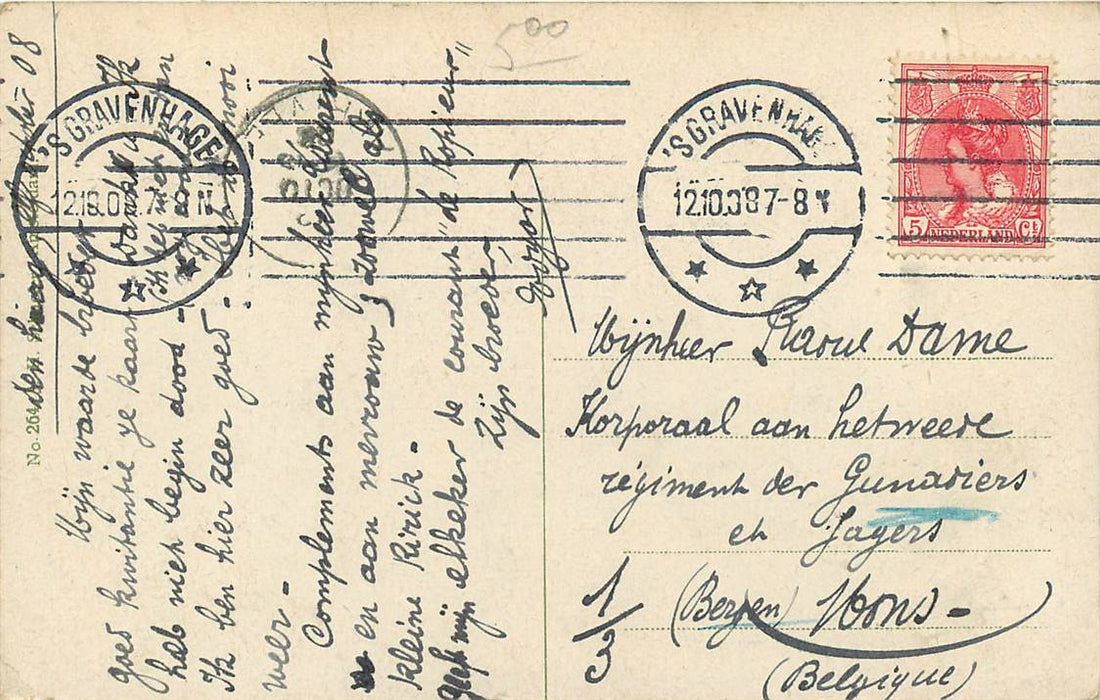 5 00
'S GRAVENHAGE
12.10.08 7-8 N
'S GRAVENHAGE
12.10.08 7-8 N
5 NEDERLAND Ct
No. 264
den haag
08
Mijn waarde broeder
goed kwitantie je kaart
heb niet begin dood -
Ik ben hier zeer goed - mooi
weer -
Complements aan mijnheer
en aan mevrouw, zoowel als
kleine Pirick -
geef mij elkeker de courant "de Popieur"
Zijn broeder,
Mijnheer Raoul Dame
Korporaal aan hetweede
régiment der Gunadiers
en Jagers
1/3
(Bergen) Mons -
(Belgique)